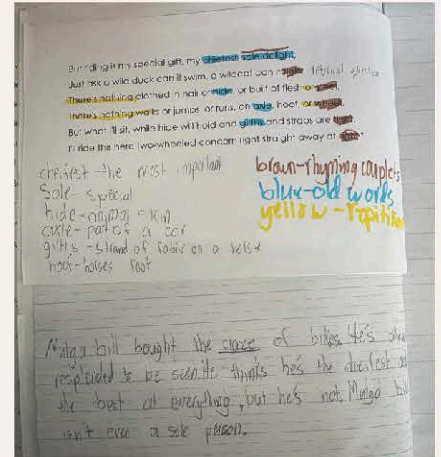 riding is my special gift, my chiefest, sole delight;
Just ask a wild duck can it swim, a wildcat can it fight. internal
There's nothing clothed in hair or hide, or built of flesh or steel,
There's nothing walks or jumps, or runs, on axle, hoof, or wheel,
But what I'll sit, while hide will hold and girths and straps are tight:
I'll ride this here two-wheeled concern right straight away at sight."
cheifest - the most important
Sole - special
hide - animal skin
axle - part of a car
girths - strand of fabric on a
hoof - horses foot
brown - rhyming couplets
blue - old words
yellow -
Mulga bill bought the craze of bikes. He's
to be seen. He thinks he's the
the best at everything, but he's not. Mulga bill
isn't even a sole person.